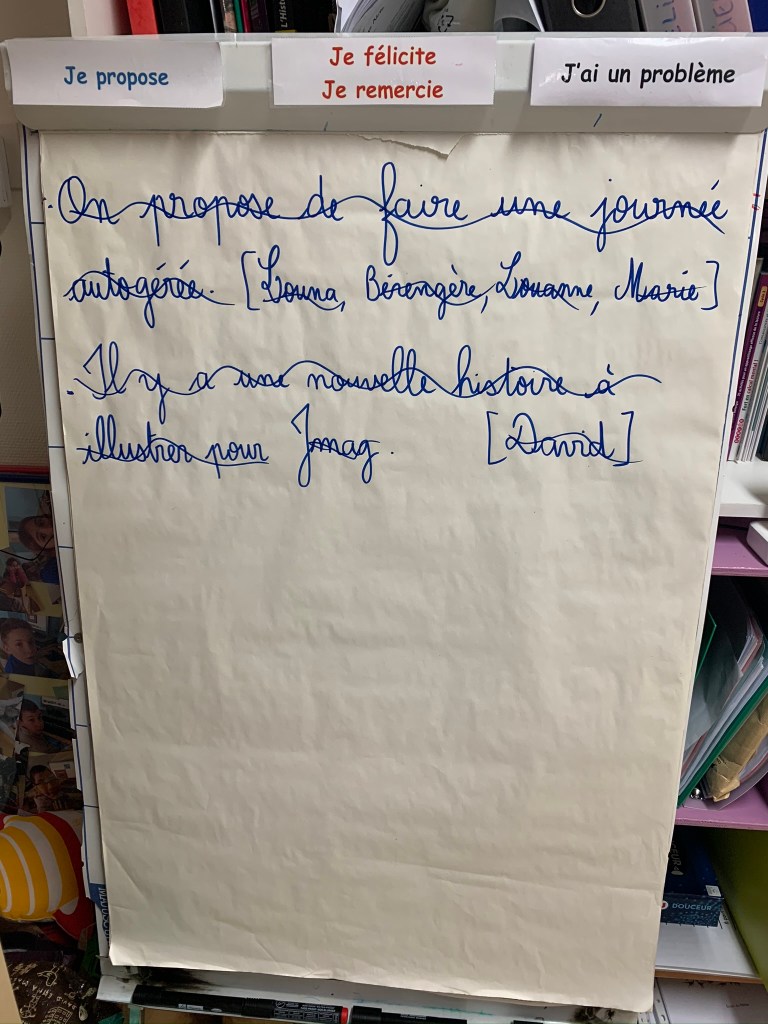 Je propose
Je félicite
Je remercie
J'ai un problème
. On propose de faire une journée
autogérée. [Louna, Bérengère, Louanne, Marie]
. Il y a une nouvelle histoire à
illustrer pour Jmag. [David]
DOUCEUR